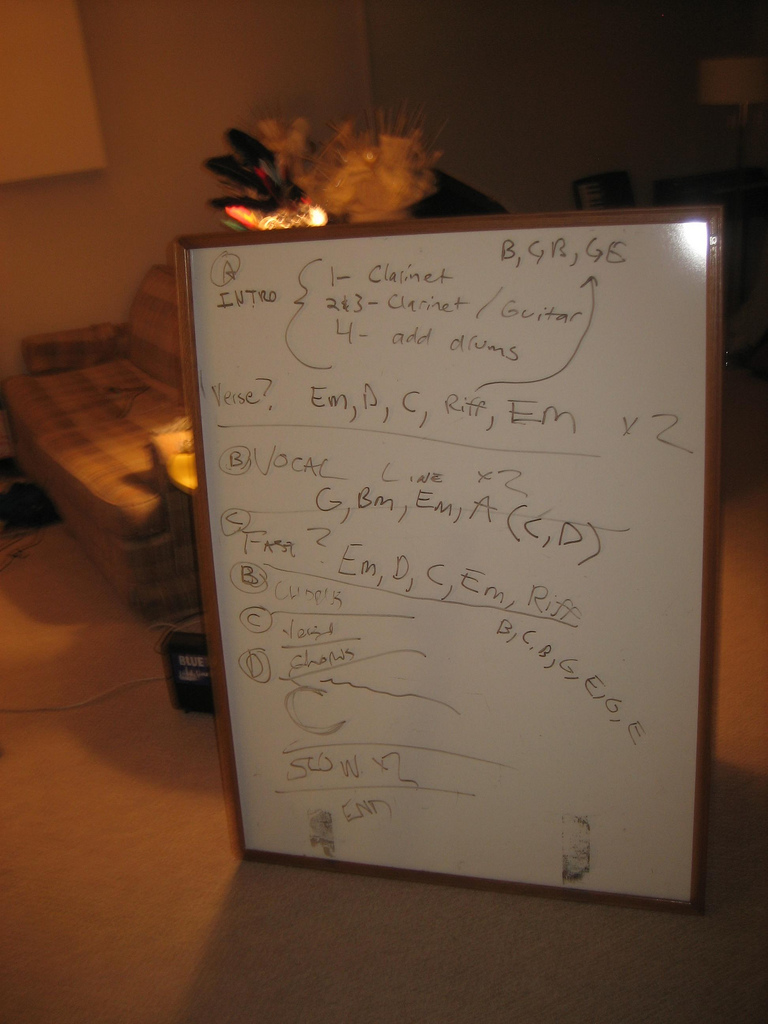 B, G B, G E
A
INTRO
1- Clarinet
2&3- Clarinet / Guitar
4- add drums
Verse? Em, D, C, Riff, Em x2
B VOCAL LINE x2
G, Bm, Em, A (C, D)
C
FAST?
Em, D, C, Em, Riff
B, C, B, G, E, G, E
B
C Verse
D Chorus
C
SLOW x2
END
BLUE